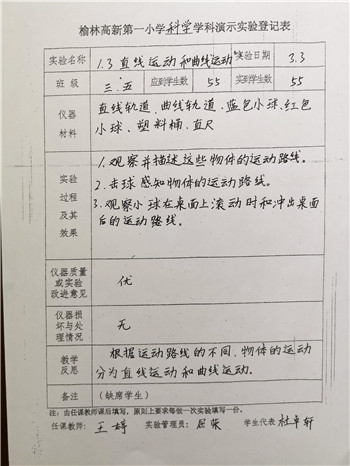 榆林高新第一小学科学学科演示实验登记表
实验名称 1.3直线运动和曲线运动 实验日期 3.3
班级 三.五 应到学生数 55 实到学生数 55
仪器材料 直线轨道、曲线轨道、蓝色小球、红色
小球、塑料桶、直尺
实验过程及其效果 1.观察并描述这些物体的运动路线。
2.击球感知物体的运动路线。
3.观察小球在桌面上滚动时和冲出桌面
后的运动路线。
仪器质量或实验改进意见 优
仪器损坏与处理情况 无
教学反思 根据运动路线的不同,物体的运动
分为直线运动和曲线运动。
备注 (缺席学生)
注:由任课教师课后填写,原则上要求每做一次实验填写一份。
任课教师:王婷 实验管理员:屈荣 学生代表:杜卓轩